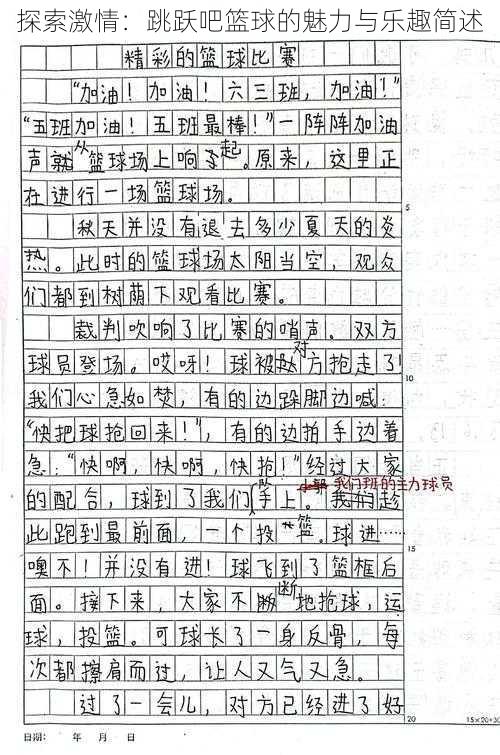 探索激情：跳跃吧篮球的魅力与乐趣简述
精彩的篮球比赛
“加油！加油！六三班，加油！”
“五班加油！五班最棒！”一阵阵加油
声就从篮球场上响了起。原来，这里正
在进行一场篮球场。
秋天并没有退去多少夏天的炎
热。此时的篮球场太阳当空，观众
们都到树荫下观看比赛。
裁判吹响了比赛的哨声。双方
球员登场。哎呀！球被对方抢走了！
我们心急如焚，有的边跺脚边喊：
“快把球抢回来！”，有的边拍手边着
急：“快啊，快啊，快抢！”经过大家
的配合，球到了我们队手上。我们班的主力球员趁
此跑到最前面，一个投篮。球进……
噢不！并没有进！球飞到了篮框后
面。接下来，大家不断地抢球，运
球，投篮。可球长了一身反骨，每
次都擦肩而过，让人又气又急。
过了一会儿，对方已经进了好
5
10
15
20
日期： 年 月 日
15×20=300